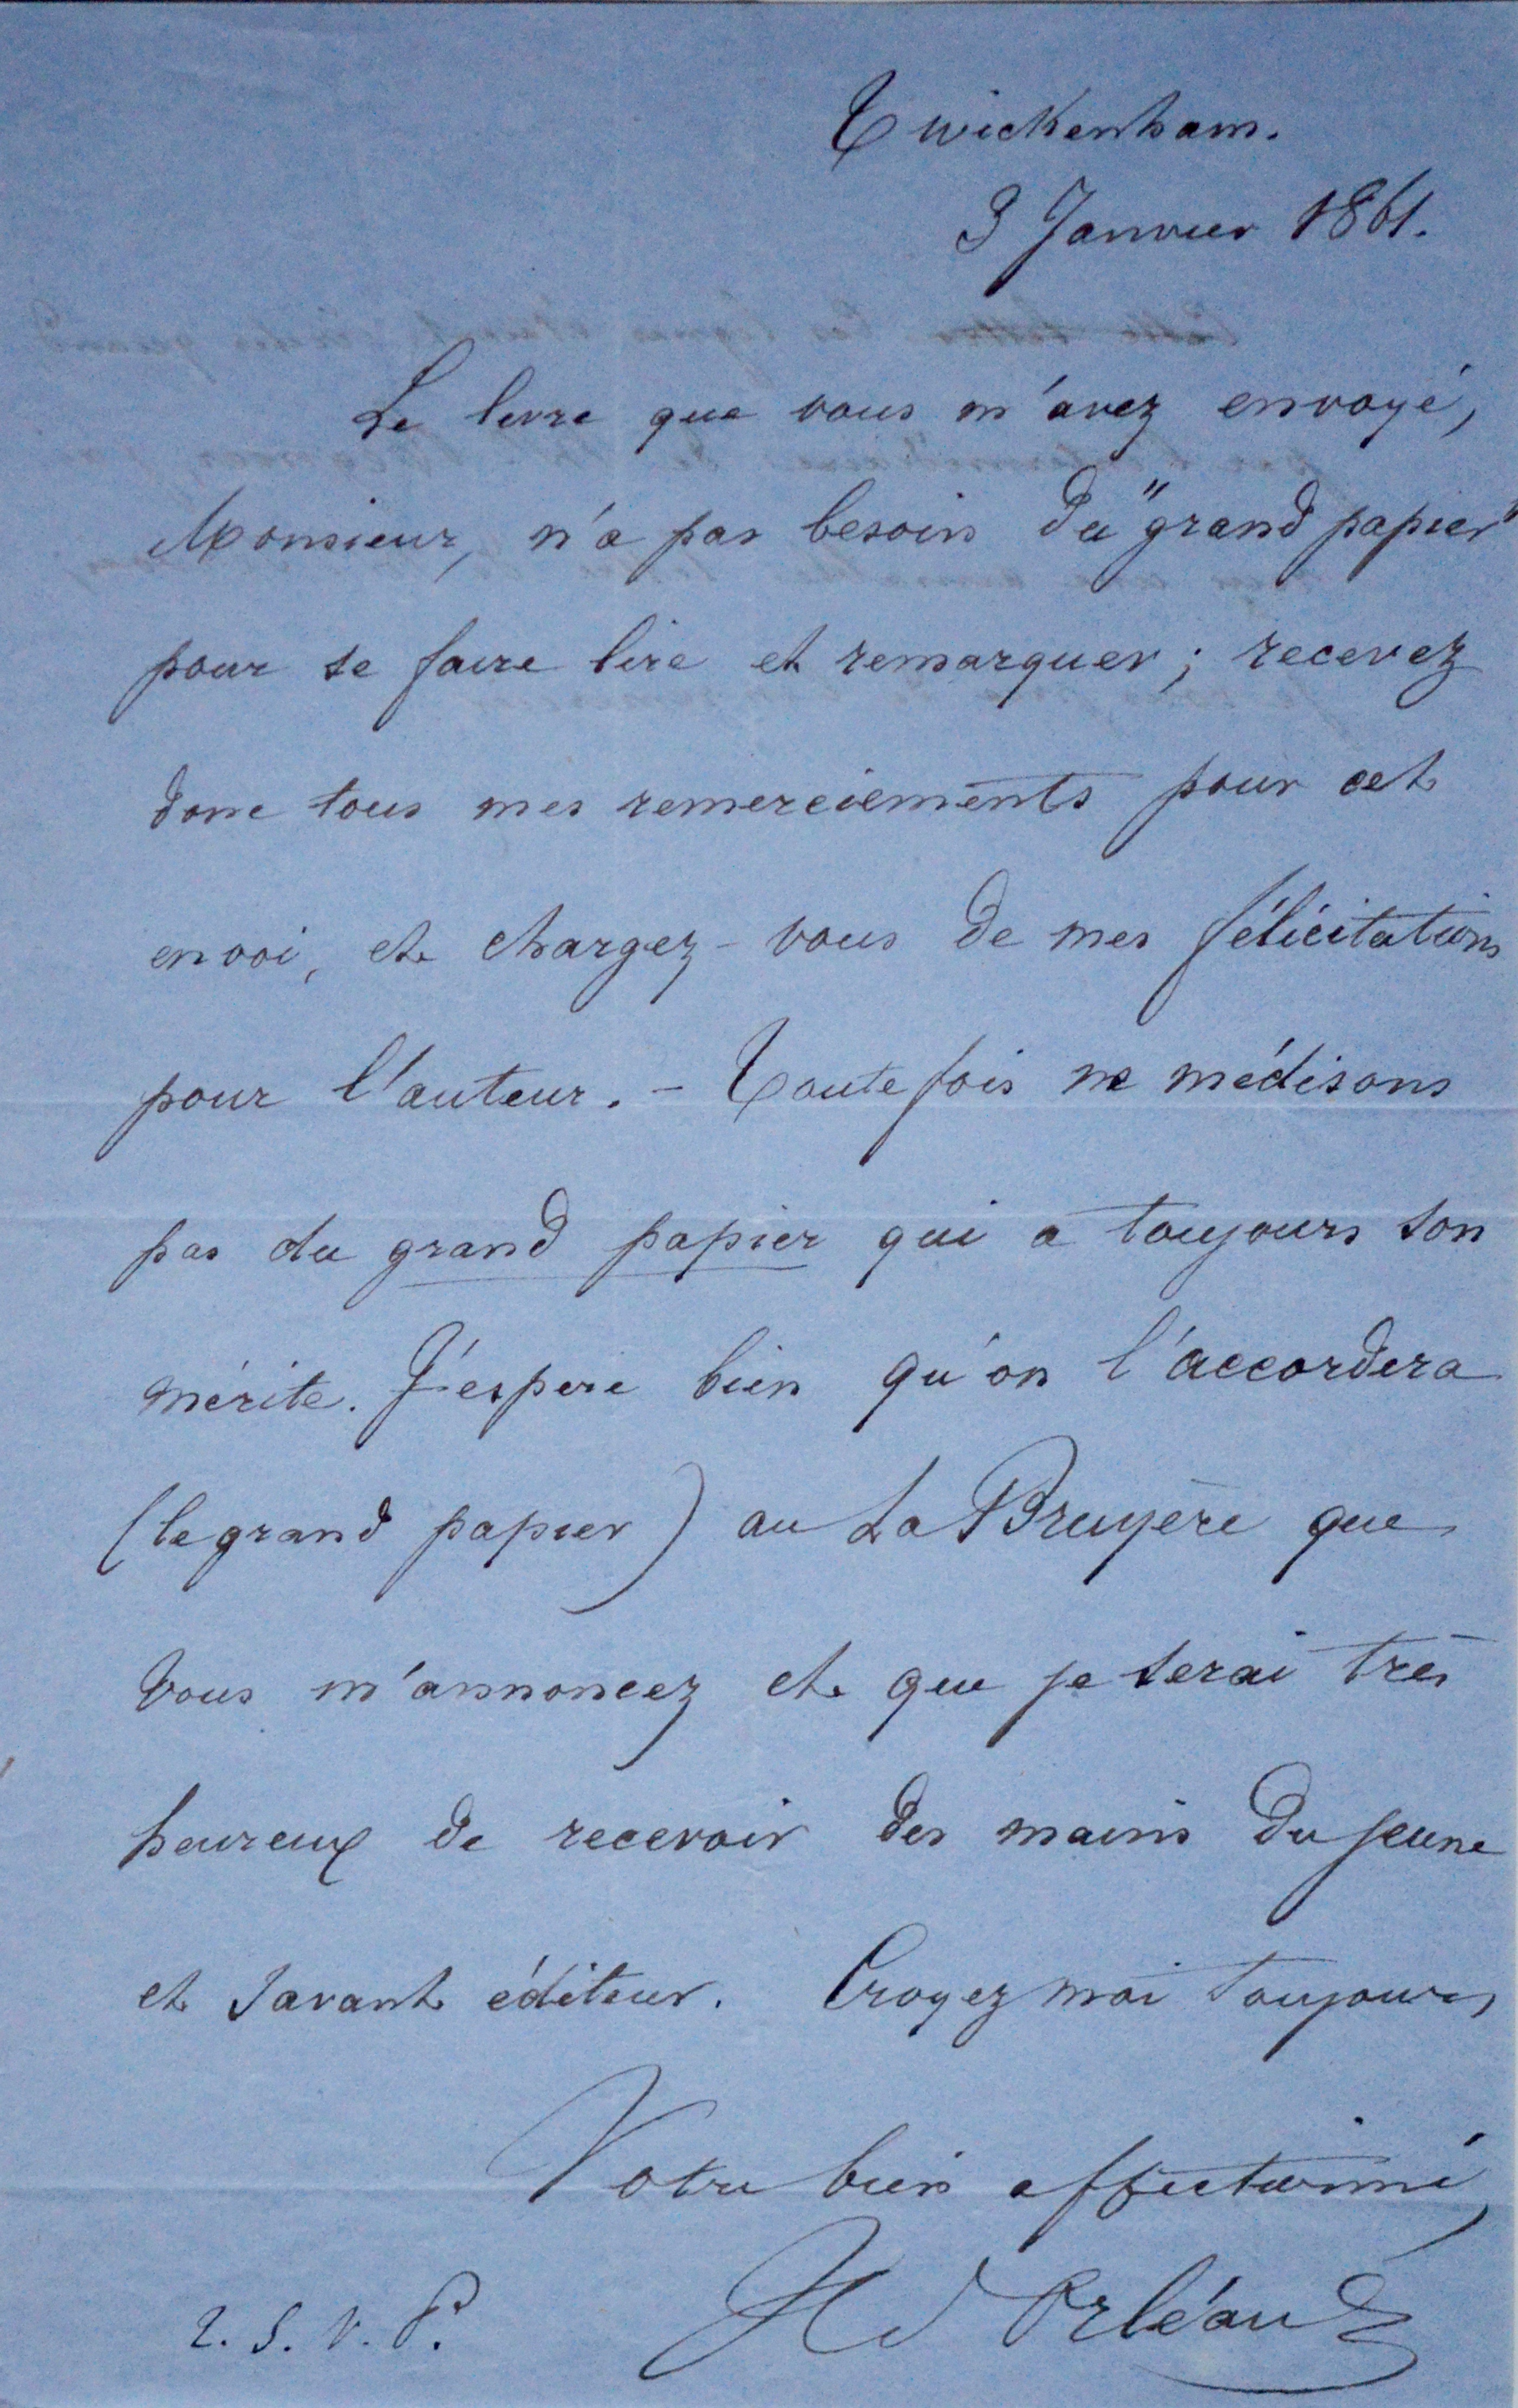 Twickenham.
3 Janvier 1861.
Le livre que vous m'avez envoyé,
Monsieur, n'a pas besoin du "grand papier"
pour se faire lire et remarquer; recevez
donc tous mes remerciements pour cet
envoi, et chargez-vous de mes félicitations
pour l'auteur. - Toutefois ne médisons
pas du grand papier qui a toujours son
mérite. J'espere bien qu'on l'accordera
(le grand papier) au La Bruyère que
vous m'annoncez et que je serai très
heureux de recevoir des mains du jeune
et savant éditeur. Croyez moi toujours
Votre bien affectionné,
H d'Orléans
T. S. V. P.